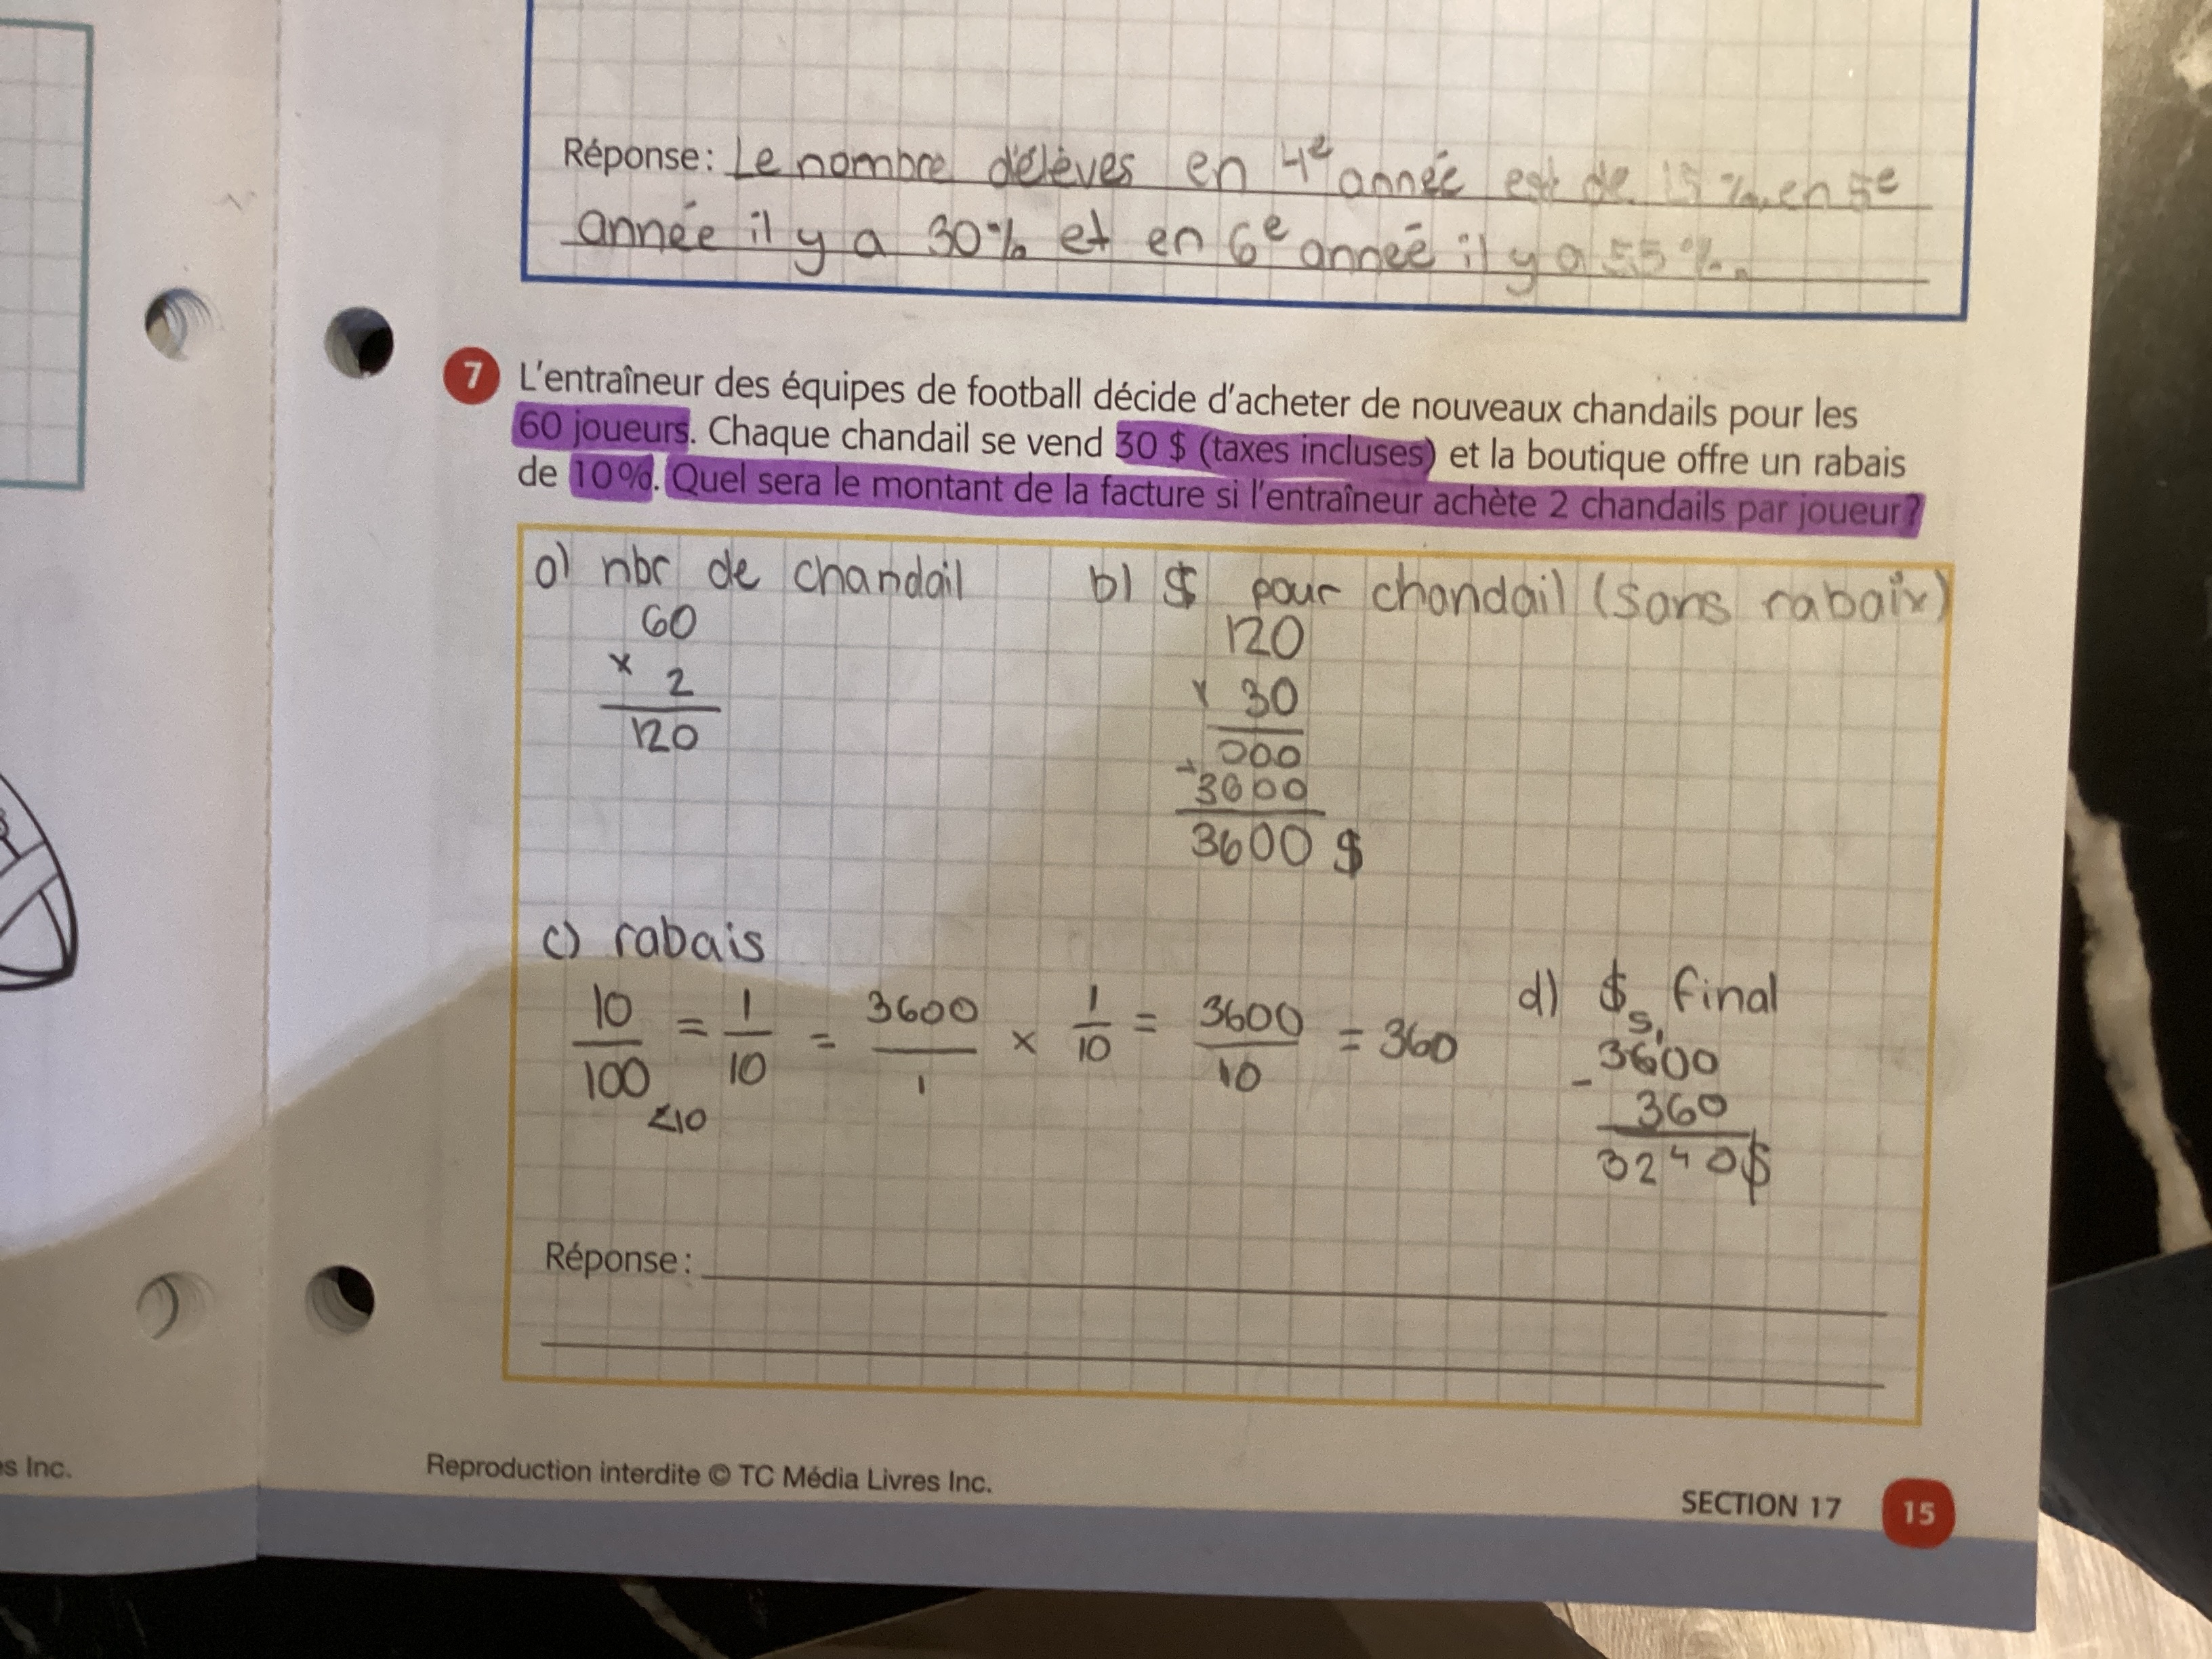 Réponse: Le nombre d'élèves en 4e année est de 15 %, en 5e
année il y a 30% et en 6e année il y a 55 %.
7 L'entraîneur des équipes de football décide d'acheter de nouveaux chandails pour les
60 joueurs. Chaque chandail se vend 30 $ (taxes incluses) et la boutique offre un rabais
de 10%. Quel sera le montant de la facture si l'entraîneur achète 2 chandails par joueur?
a) nbr de chandail
60
x 2
120
b) $ pour chandail (sans rabaix)
120
x 30
000
+3600
3600 $
c) rabais
10/100 = 1/10 = 3600/1 x 1/10 = 3600/10 = 360
÷10
d) $ final
5 1
3600
- 360
3240$
Réponse:
s Inc.
Reproduction interdite © TC Média Livres Inc.
SECTION 17 15